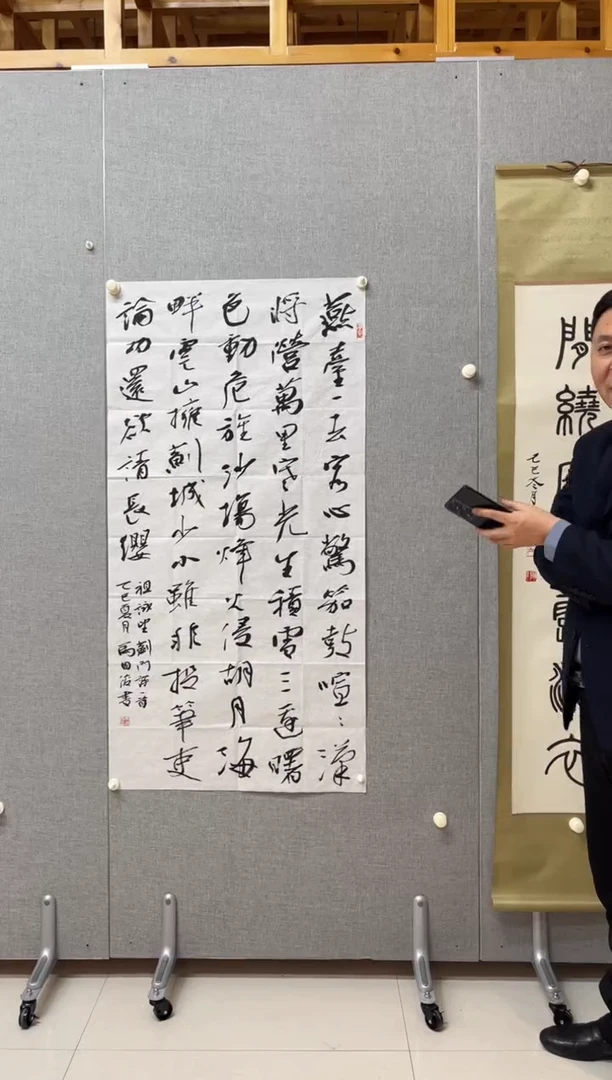 燕臺一去客心驚笳鼓喧〻漢
將營萬里寒光生積雪三邊曙
色動危旌沙場烽火侵胡月海
畔雲山擁薊城少小雖非投筆吏
論功還欲請長纓
祖詠望薊門詩一首
乙巳夏月馬田書
閒繞
乙巳冬月